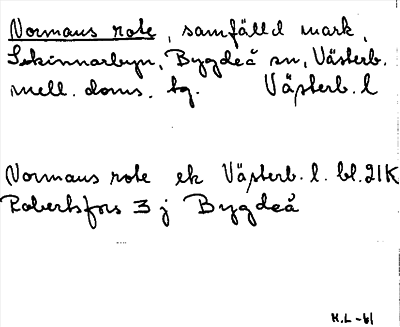 Normans rote, samfälld mark,
Skinnarbyn, Bygdeå sn, Västerb.
mell. doms. tg. Västerb. l
Normans rote ek Västerb. l. bl. 21K
Robertsfors 3 j Bygdeå
H.L -61